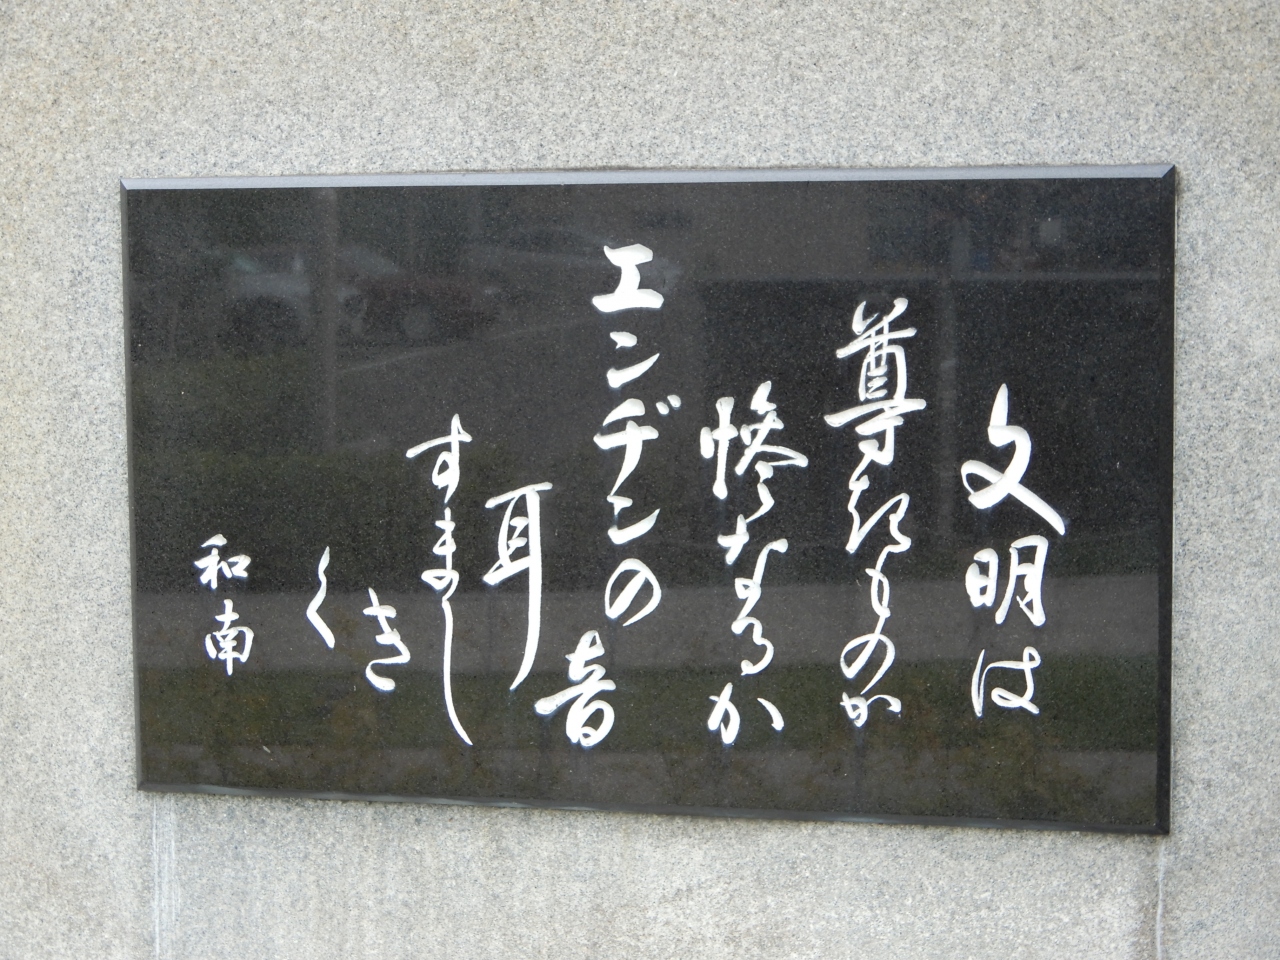 文明は
尊きものか
惨なるか
エンヂンの音
耳
すまし
きく
和南